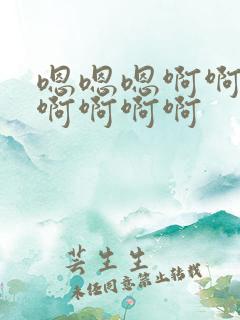 嗯嗯嗯啊啊
啊啊啊啊
芸生生
未经同意禁止转载